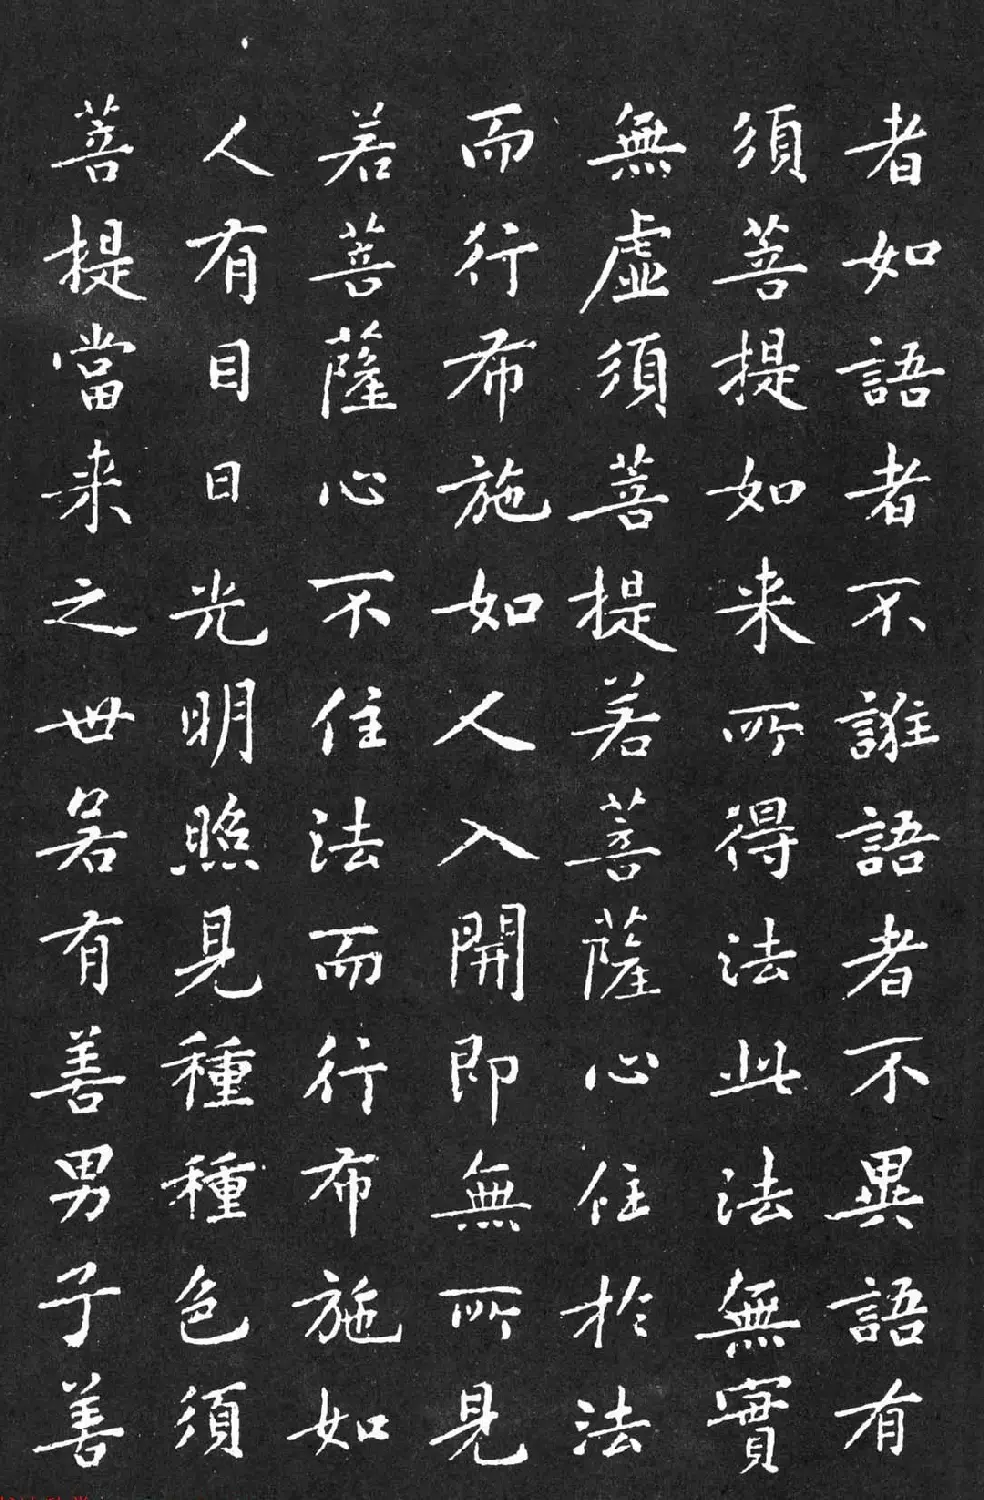 者如語者不誑語者不異語有
須菩提如来所得法此法無實
無虛須菩提若菩薩心住於法
而行布施如人入開即無所見
若菩薩心不住法而行布施如
人有目日光明照見種種色須
菩提當来之世若有善男子善